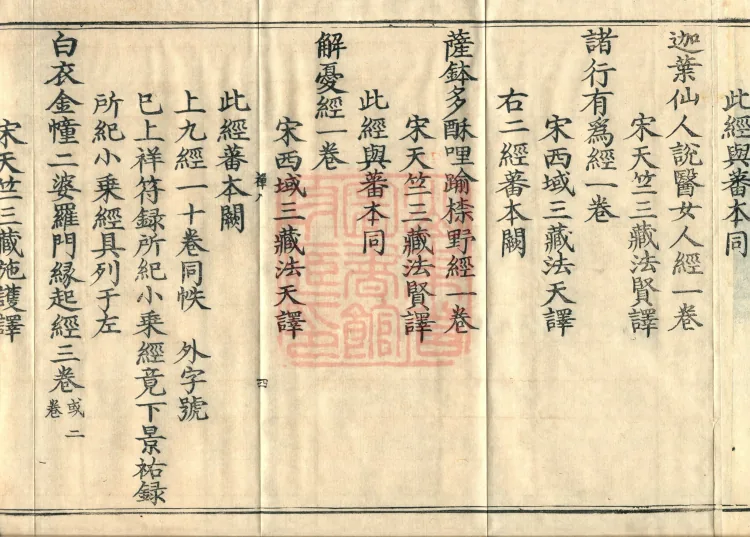 此經與蕃本同
迦葉仙人說醫女人經一卷
宋天竺三藏法賢譯
諸行有爲經一卷
宋西域三藏法天譯
右二經蕃本闕
薩鉢多酥哩踰㮈野經一卷
宋天竺三藏法賢譯
此經與蕃本同
解憂經一卷
宋西域三藏法天譯
四
此經蕃本闕
上九經一十卷同帙 外字號
已上祥符録所紀小乘經竟下景祐録
所紀小乘經具列于左
白衣金幢二婆羅門緣起經三卷或二卷
宋天竺三藏施護譯